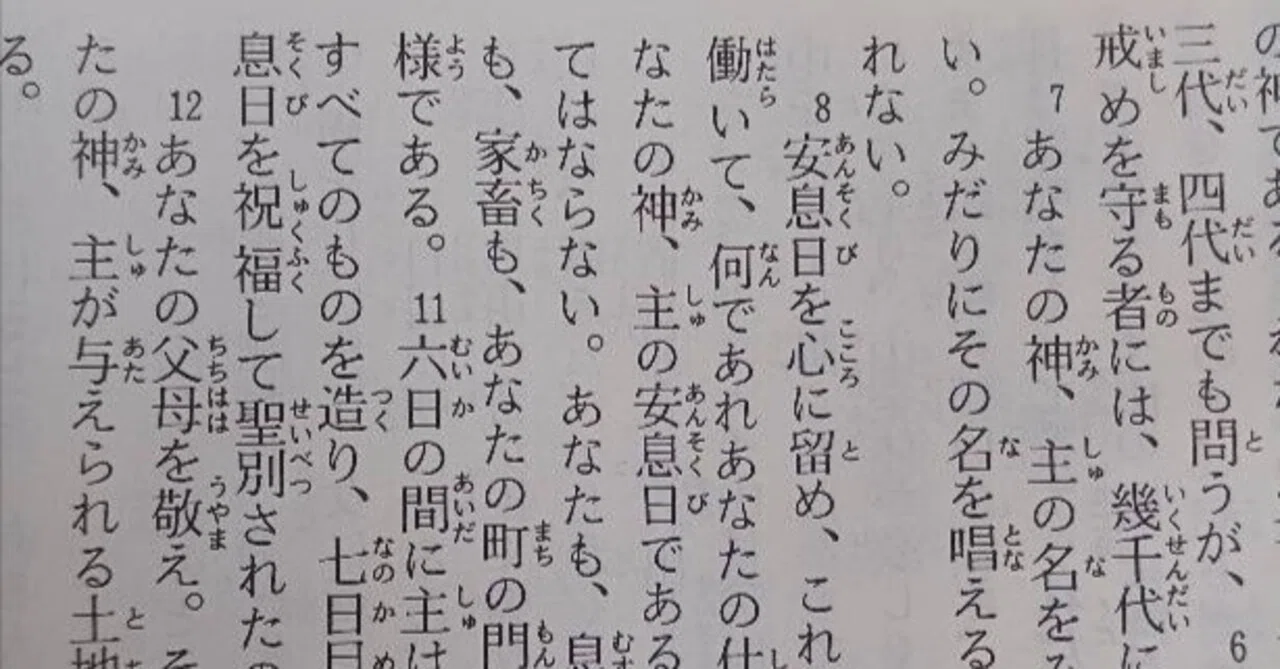 の神である
三代、四代までも問うが、6
戒めを守る者には、幾千代に
7あなたの神、主の名をみ
い。みだりにその名を唱える
れない。
8安息日を心に留め、これ
働いて、何であれあなたの仕
なたの神、主の安息日である
てはならない。あなたも、息
も、家畜も、あなたの町の門
様である。11六日の間に主は
すべてのものを造り、七日目
息日を祝福して聖別されたの
12あなたの父母を敬え。そ
たの神、主が与えられる土地
る。